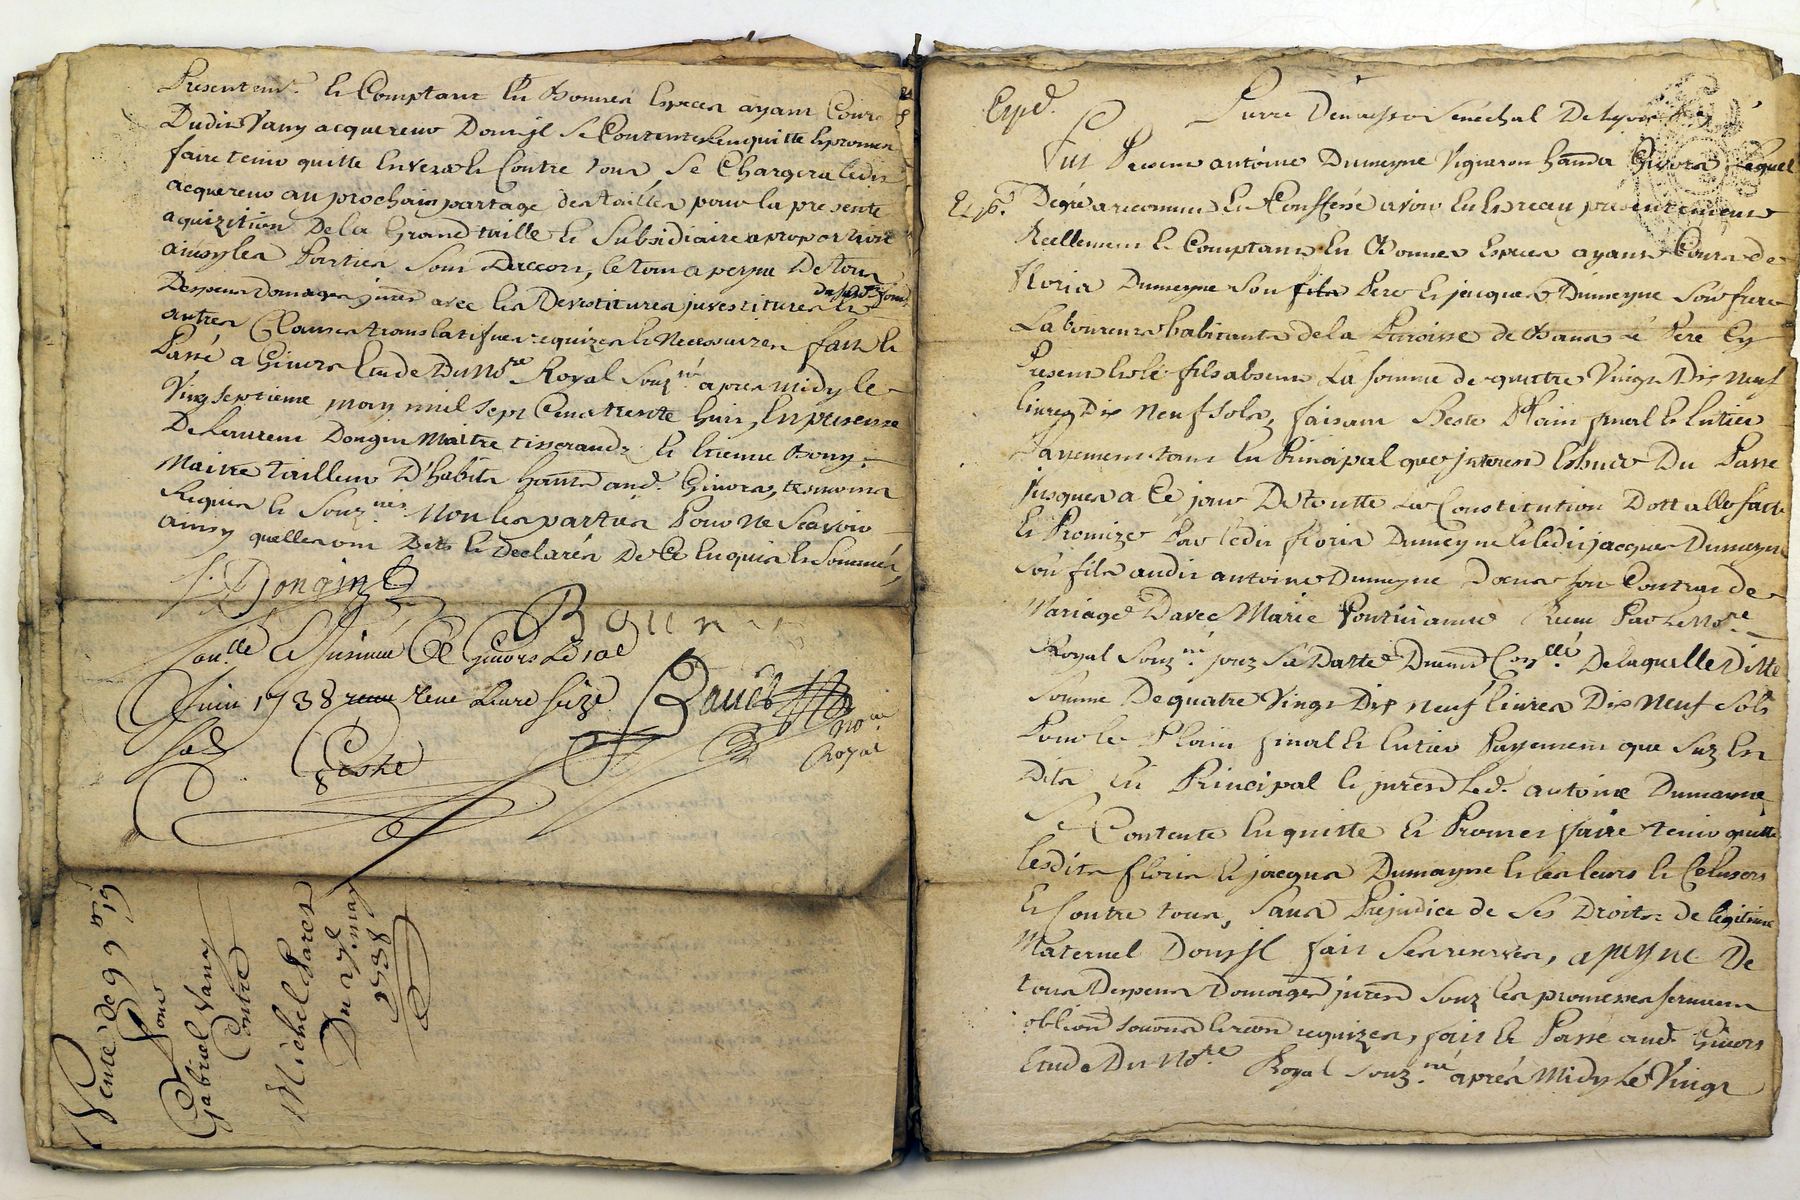 Presentemt. & Comptant En Bonnes Especes ayant Cours
Dudit Vany acquereur Dont jl Se Contente Lenquitte & promet
faire tenir quitte Envers & Contre tous, Se Chargera ledit
acquereur au prochain partage des tailles pour la presente
aquizition De la Grand taille & Subsidiaire a proportion
ainsy les Parties Sont Daccord, le tout a peyne De tous
Despens Domages jnts avec les Devestitures jnvestitures &
autres Clauses translatifves requizes & Necessaires fait &
Passé a Givors Etude Du Nore Royal Souzné apres midy le
Vingt septieme may mil sept Cent trente huit, En presence
De Laurent Dongin Maitre tisserand, & Etienne Bony
Maitre tailleur D'habits hants aud. Givors, temoins
Requis & Souznés Non les parties Pour Ne Scavoir
ainsy quelles ont Dit & Declarés De Ce Enquis & Sommés,
Dongin
Bony
Conlle & jnsinué A Givors Le
Juin 1738 reçu Une Livre Seize
sols
No.re
Royal
Vente de 99 # 19 s
Pour
Gabriel Vany
Contre
Michel
Du 27e may
1738
Expd.
Pierre Senechal De Lyon
Fut Present antoine Dumeyne Vigneron hant a Givors Lequel
De gré a reconnu & Confessé avoir Eu & receu presentement
Reellement & Comptant En Bonnes Especes ayant Cours de
Floris Dumeyne Son Pere & jacques Dumeyne Son frere
Laboureurs habitants de la Paroisse de Bans Le Pere Cy
Present & le fils absent La Somme de quatre Vingt Dix Neuf
livres Dix Neuf Sols, faisant Reste Plain final & Entier
Payement tant En Principal que jnterest Eschuts Du Passé
jusques a Ce jour De toutte La Constitution Dottalle faite
& Promize Par ledit floris Dumeyne & ledit jacques Dumeyne
Son fils audit antoine Dumeyne Dans Son Contrat de
Mariage Davec Marie Reçu Par le Nore
Royal Souzné jouz Sa Datte Duement Conllé De laquelle Ditte
Somme De quatre Vingt Dix neuf livres Dix Neuf Sols
Pour le Plain final & Entier Payement que Suz Est
Dits En Principal & jnterest Led. antoine Dumeyne
Se Contente En quitte & Promet faire tenir quitte
Lesdits floris & jacques Dumayne & les leurs
& Contre tous, Sans Préjudice de Ses Droits de légitime
Maternel Dont jl fait Ses reserves, a peyne De
tous Despens Domages jnterest Souz les promesses serment
requizes, fait & Passé aud. Givors
Etude Du Nore Royal Souzné aprés Midy Le Vingt